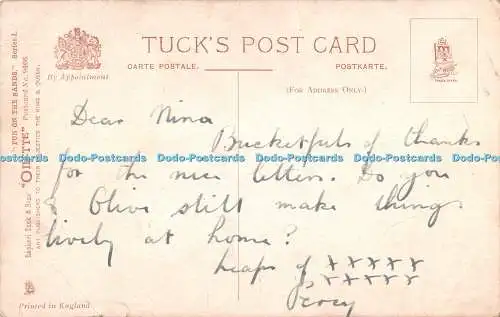 TUCK'S POST CARD
CARTE POSTALE.
POSTKARTE.
By Appointment
(FOR ADDRESS ONLY.)
Dear Nina
Bucketfuls of thanks
for the nice letters. Do you
& Olive still make things
lively at home?
heaps of xxxxx
xxxxx
Percy
Raphael Tuck & Sons' "OILETTE" "FUN ON THE SANDS." Series I.
Postcard No. 9406
ART PUBLISHERS TO THEIR MAJESTIES THE KING & QUEEN.
Printed in England
Dodo-Postcards Dodo-Postcards Dodo-Postcards Dodo-Postcards Dodo-Postcards
Dodo-Postcards Dodo-Postcards Dodo-Postcards Dodo-Postcards